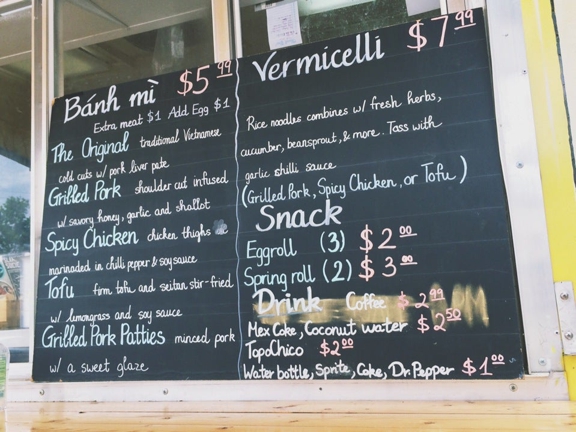 Bánh mì $5.99
Extra meat $1 Add Egg $1
The Original traditional Vietnamese
cold cuts w/ pork liver pate
Grilled Pork shoulder cut infused
w/ savory honey, garlic and shallot
Spicy Chicken chicken thighs
marinaded in chilli pepper & soy sauce
Tofu firm tofu and seitan stir-fried
w/ lemongrass and soy sauce
Grilled Pork Patties minced pork
w/ a sweet glaze
Vermicelli $7.99
Rice noodles combines w/ fresh herbs,
cucumber, beansprout, & more. Tass with
garlic chilli sauce
(Grilled Pork, Spicy Chicken, or Tofu)
Snack
Eggroll (3) $2.00
Spring roll (2) $3.00
Drink Coffee $2.99
Mex Coke, Coconut water $2.50
TopoChico $2.00
Water bottle, Sprite, Coke, Dr. Pepper $1.00